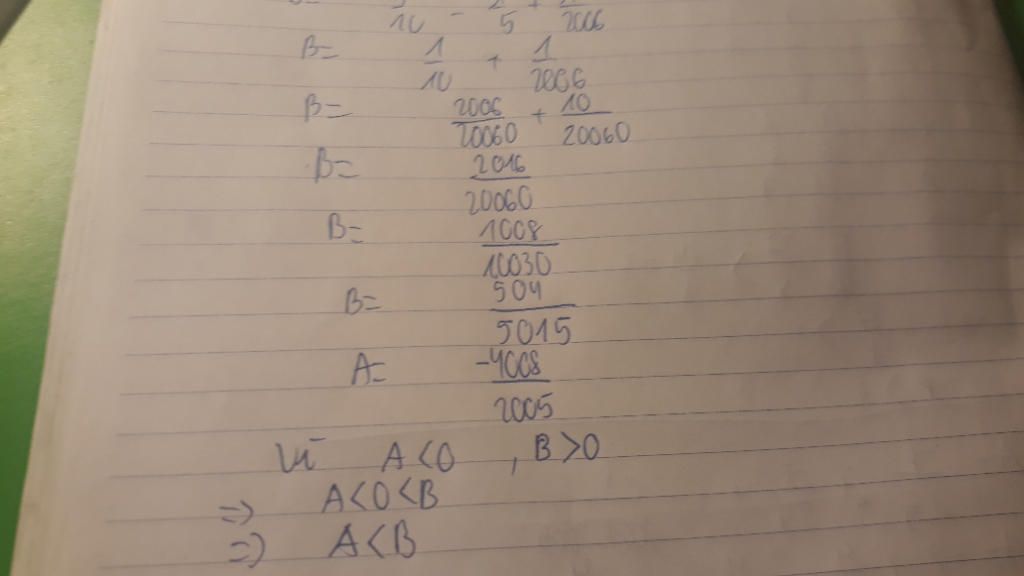 10 - 5 + 2006
B= 1/10 + 1/2006
B= 2006/20060 + 10/20060
B= 2016/20060
B= 1008/10030
B= 504/5015
A= -4008/2005
Vì A<0 , B>0
=> A<0<B
=> A<B